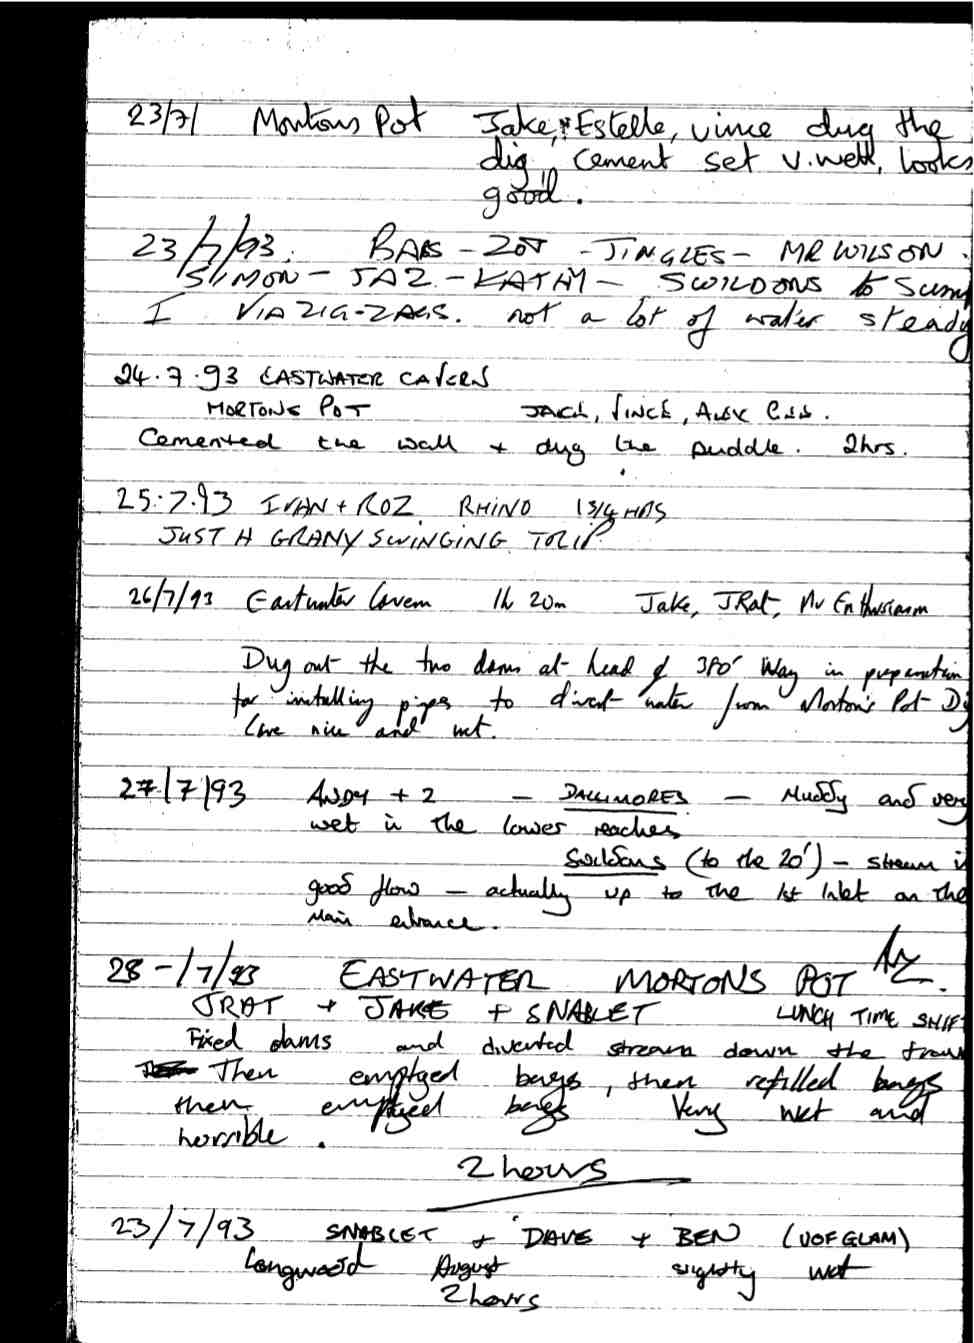 23/7/ Mortons Pot Jake, Estelle, vince dug the
dig, cement set v. well, looks
good.
23/7/93. BABS - ZOT - JINGLES - MR WILSON.
SIMON - JAZ - KATHY - SWILDONS to Sump
I VIA ZIG-ZAGS. not a lot of water steady
24.7.93 EASTWATER CAVERN
MORTONS POT JACK, VINCE, ALEX
Cemented the wall + dug the puddle. 2hrs.
25.7.93 IVAN + ROZ RHINO 1 3/4 HRS
JUST A GRANY SWINGING TRIP
26/7/93 Eastwater Cavern 1h 20m Jake, JRat, Mr Enthusiasm
Dug out the two dams at head of 380' Way in preparation
for installing pipes to divert water from Morton's Pot
Cave nice and wet.
27/7/93 ANDY + 2 - DALLIMORES - Muddy and very
wet in the lower reaches
Swildons (to the 20') - stream in
good flow - actually up to the 1st Inlet on the
Main entrance.
28-/7/93 EASTWATER MORTONS POT
JRAT + JAKE + SNABLET LUNCH TIME SHIFT
Fixed dams and diverted stream down the
Then emptyed bags, then refilled bags
then emptyed bags Very wet and
horrible.
2 hours
23/7/93 SNABLET + DAVE + BEN (UOFGLAM)
Longwood August slightly wet
2 hours